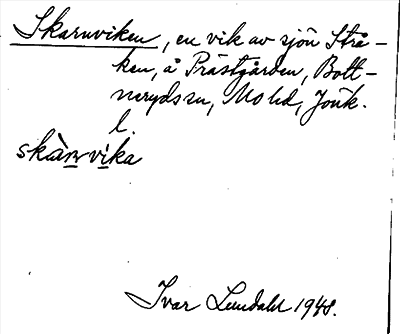 Skarnviken, en vik av sjön Strå-
ken, å Prästgården, Bott-
neryds sn, Mo hd, Jönk.
l.
skànvika
Ivar Lundahl 1948.